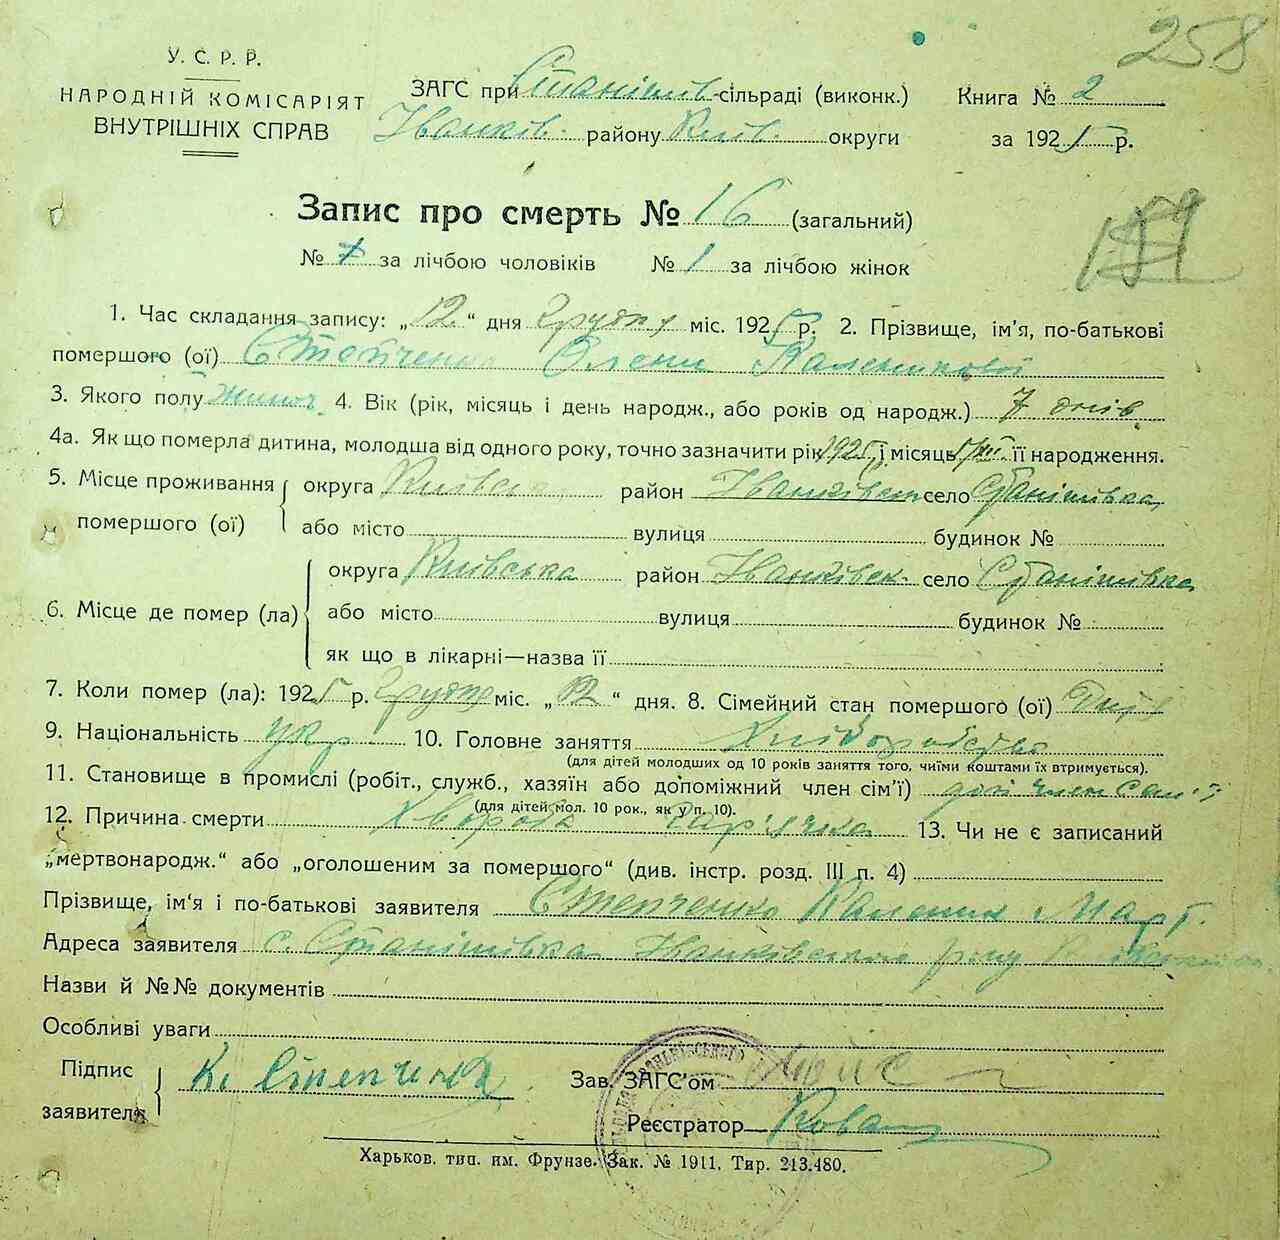 258
У. С. Р. Р.
НАРОДНІЙ КОМІСАРІЯТ
ВНУТРІШНІХ СПРАВ
ЗАГС при Станішів-сільраді (виконк.)
Іванків. району Київ. округи
Книга № 2
за 1925 р.
Запис про смерть № 16 (загальний)
№ за лічбою чоловіків № 1 за лічбою жінок
1. Час складання запису: „12“ дня Грудня міс. 1925 р. 2. Прізвище, ім'я, по-батькові
помершого (ої) Степченко Олени Каленикової
3. Якого полу жиноч 4. Вік (рік, місяць і день народж., або років од народж.) 7 днів
4а. Як що померла дитина, молодша від одного року, точно зазначити рік 1925 і місяць її народження.
5. Місце проживання помершого (ої) округа Київська район Іванківськ село Станішівка
або місто вулиця будинок №
6. Місце де помер (ла) округа Київська район Іванківськ. село Станішівка
або місто вулиця будинок №
як що в лікарні—назва її
7. Коли помер (ла): 1925 р. Грудня міс. „12“ дня. 8. Сімейний стан помершого (ої)
9. Національність укр. 10. Головне заняття Хліборобство
(для дітей молодших од 10 років заняття того, чиїми коштами їх втримується).
11. Становище в промислі (робіт., служб., хазяїн або допоміжний член сім'ї) член
(для дітей мол. 10 рок., як у п. 10).
12. Причина смерти Хвороба 13. Чи не є записаний
„мертвонародж.“ або „оголошеним за помершого“ (див. інстр. розд. III п. 4)
Прізвище, ім'я і по-батькові заявителя Степченко Каленик Март.
Адреса заявителя с. Станішівка Іванківського р-ну
Назви й №№ документів
Особливі уваги
Підпис заявителя К. Степченко
Зав. ЗАГС'ом
Реєстратор
Харьков. тип. им. Фрунзе. Зак. № 1911. Тир. 213.480.